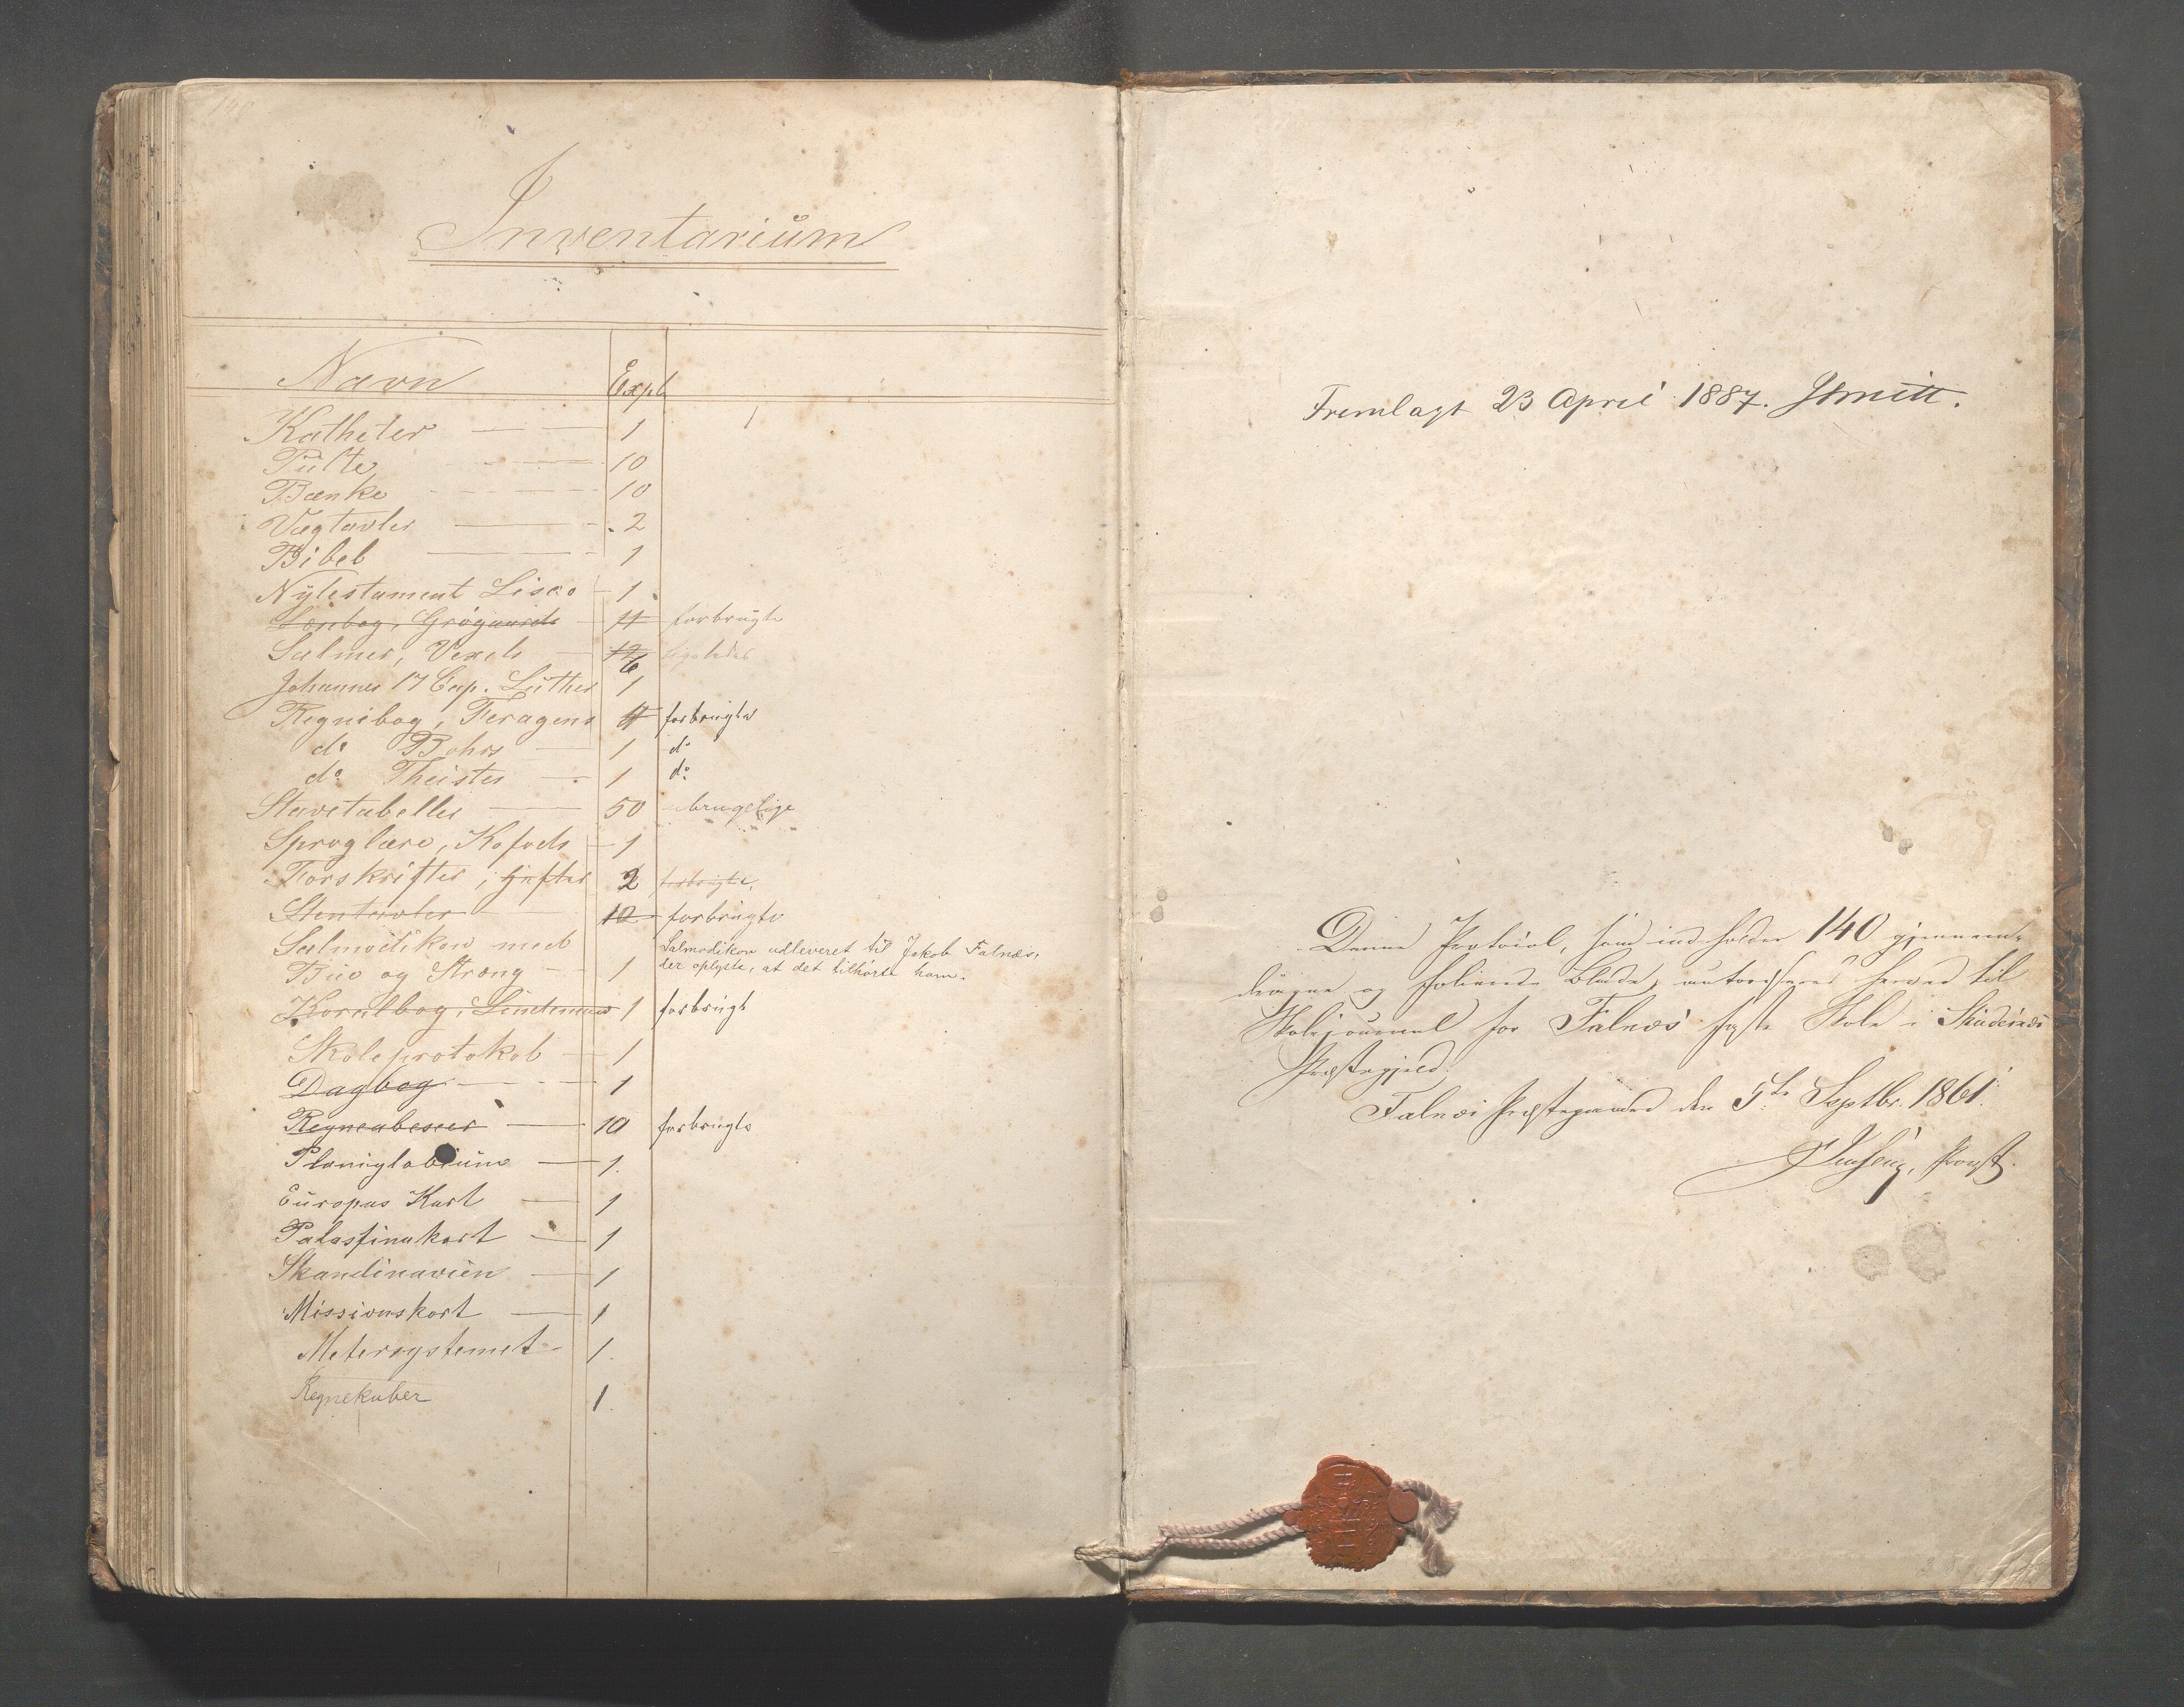 140
Inventarium
Navn Expl
Katheter 1
Pulte 10
Bænke 10
Vægtavler 2
Bibel 1
Nÿtestament Lisco 1
Læsebog, Grøgaards 11 forbrugte
Salmer, Vexels 12 6 ligeledes
Johannes 17 Cap. Luther 1
Regnebog, Feragens 4 forbrugte
do Bohrs 1 do
do Theistes 1 do
Stavetabeller 50 ubrugelige
Sproglære, Kofods 1
Forskrifter, hefter 2 forbrugte,
Stentavler 12 forbrugte
Salmodikon med Salmodikon udleveret til Jakob Falnæs,
Bue og Stræng 1 der oplyste, at det tilhørte ham.
Koralbog, Lindemans 1 forbrugt
Skoleprotokol 1
Dagbog 1
Regneabeseer 10 forbrugte
Planiglobium 1.
Europas Kart 1
Palæstinakart 1
Skandinavien 1
Missionskart 1
Metersystemet 1.
Regnekuber 1.
Fremlagt 23 April 1887. Schmitt.
Denne Protocol, som indeholder 140 gjennem-
dragne og folierede Blade, autoriseres herved til
Skolejournal for Falnæs faste Skole i Skudesnæs
Præstegjeld.
Falnæs Præstegaard den 5te Septbr. 1861.
Jensenius, Provst.